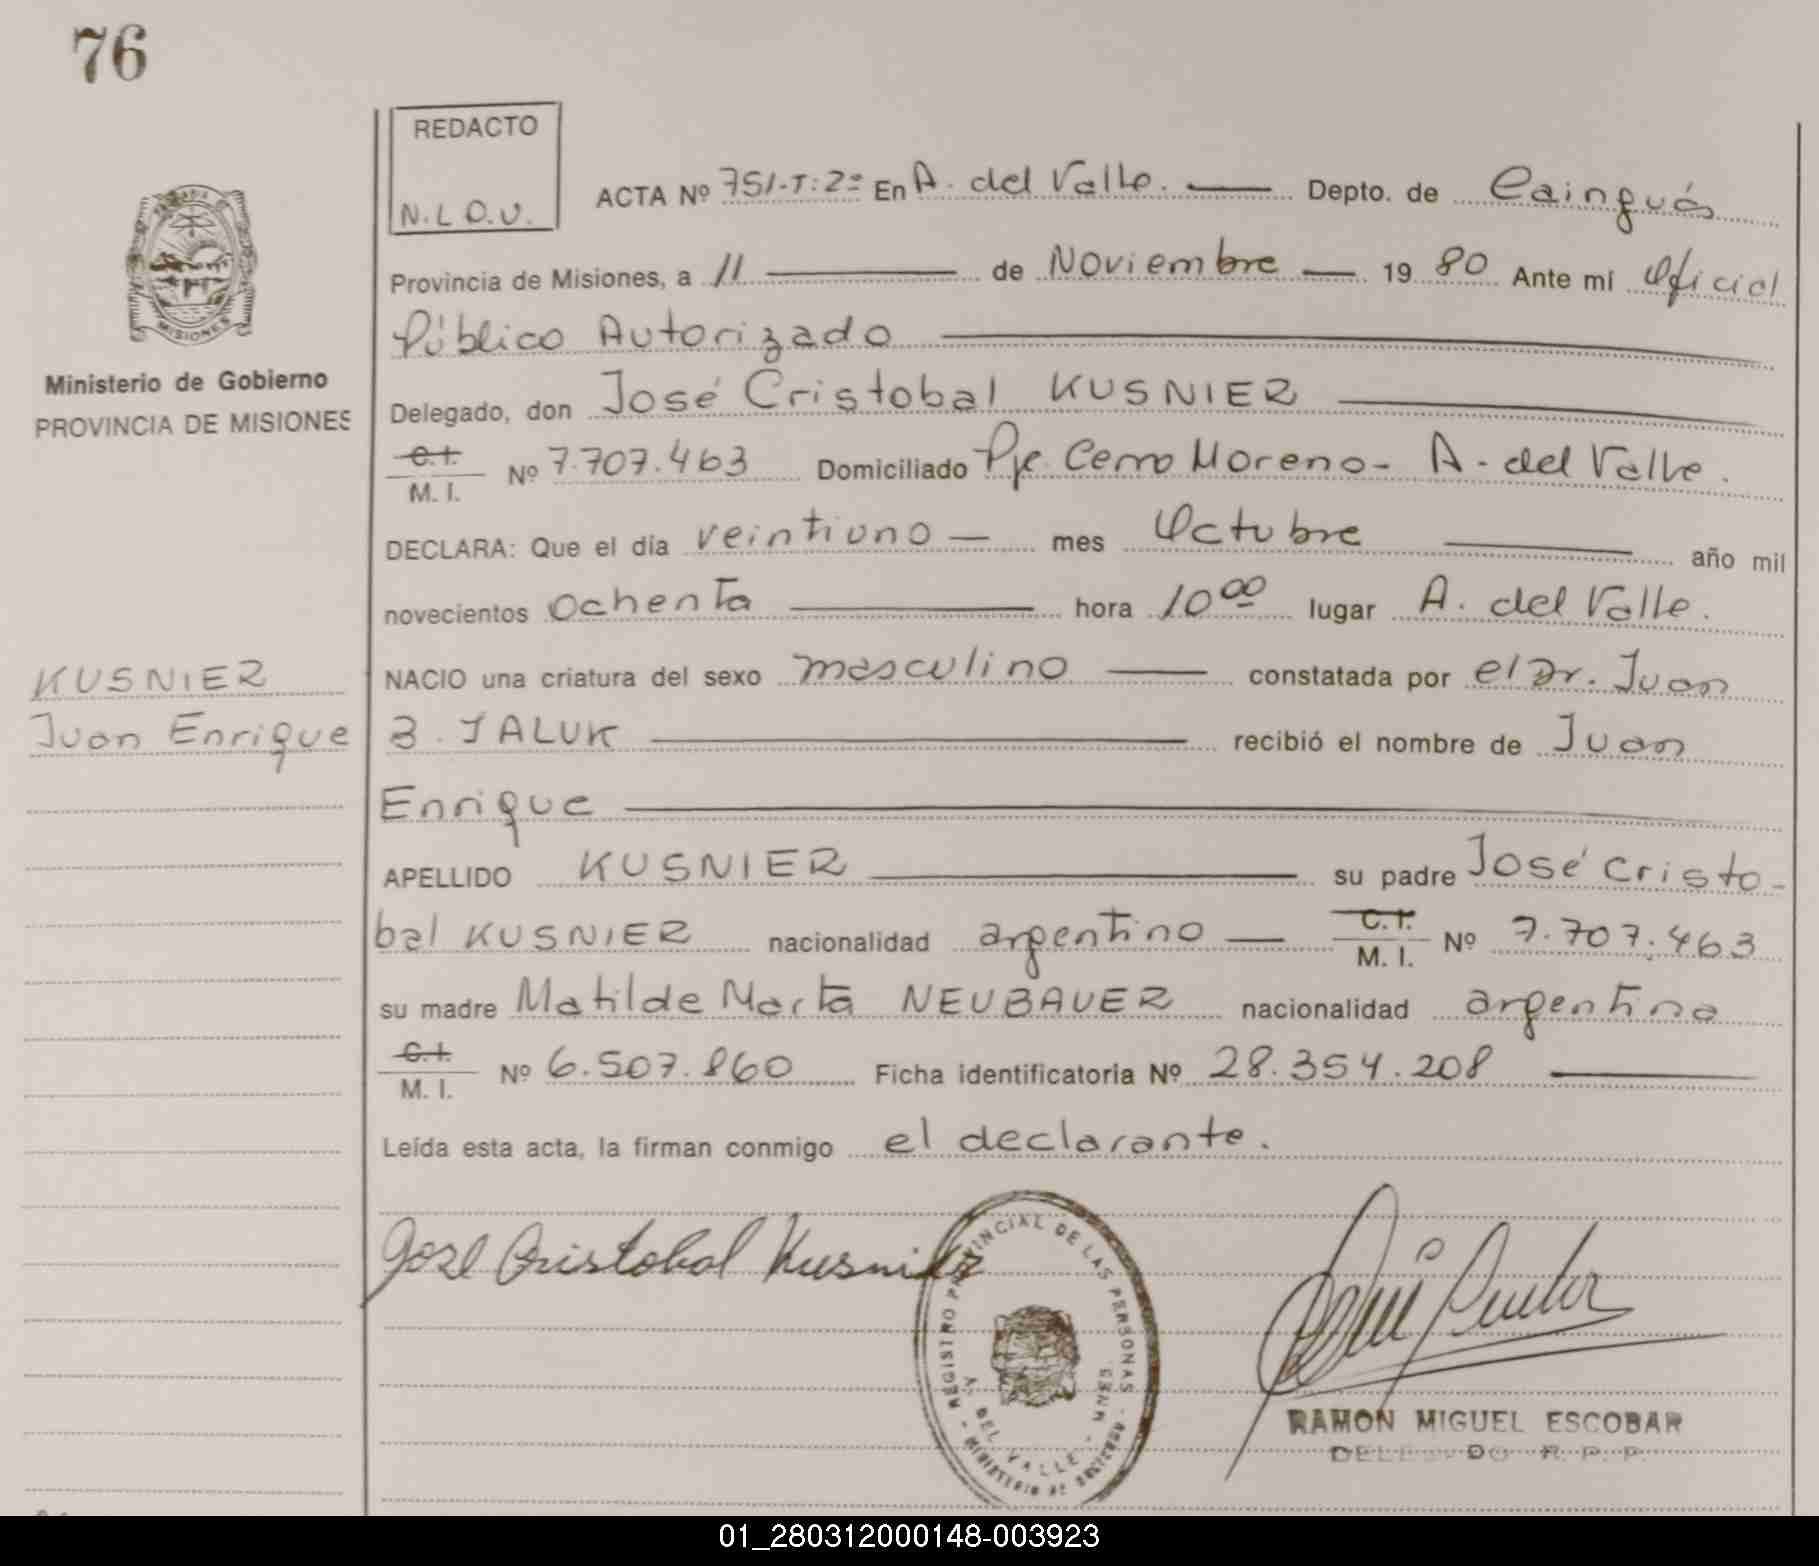 76
REDACTO
N.L.O.V.
ACTA Nº 751-T:2º En A. del Valle. Depto. de Cainguás
Provincia de Misiones, a 11 de Noviembre 19 80 Ante mí Oficial
Público Autorizado
Ministerio de Gobierno
PROVINCIA DE MISIONES
MISIONES
Delegado, don José Cristobal KUSNIER
C.I.
M. I. Nº 7.707.463 Domiciliado Pje. Cerro Moreno- A. del Valle.
DECLARA: Que el día veintiuno mes Octubre año mil
novecientos ochenta hora 10 00 lugar A. del Valle.
KUSNIER
Juan Enrique
NACIO una criatura del sexo masculino constatada por el Dr. Juan
3. JALUK recibió el nombre de Juan
Enrique
APELLIDO KUSNIER su padre José Cristo-
bal KUSNIER nacionalidad argentino C.I. M. I. Nº 7.707.463
su madre Matilde Marta NEUBAUER nacionalidad argentina
C.I.
M. I. Nº 6.507.860 Ficha identificatoria Nº 28.354.208
Leída esta acta, la firman conmigo el declarante.
José Cristobal Kusnier
REGISTRO PROVINCIAL DE LAS PERSONAS
A. DEL VALLE - MNES.
MINISTERIO DE
RAMON MIGUEL ESCOBAR
DELEGADO R. P. P.
01_280312000148-003923